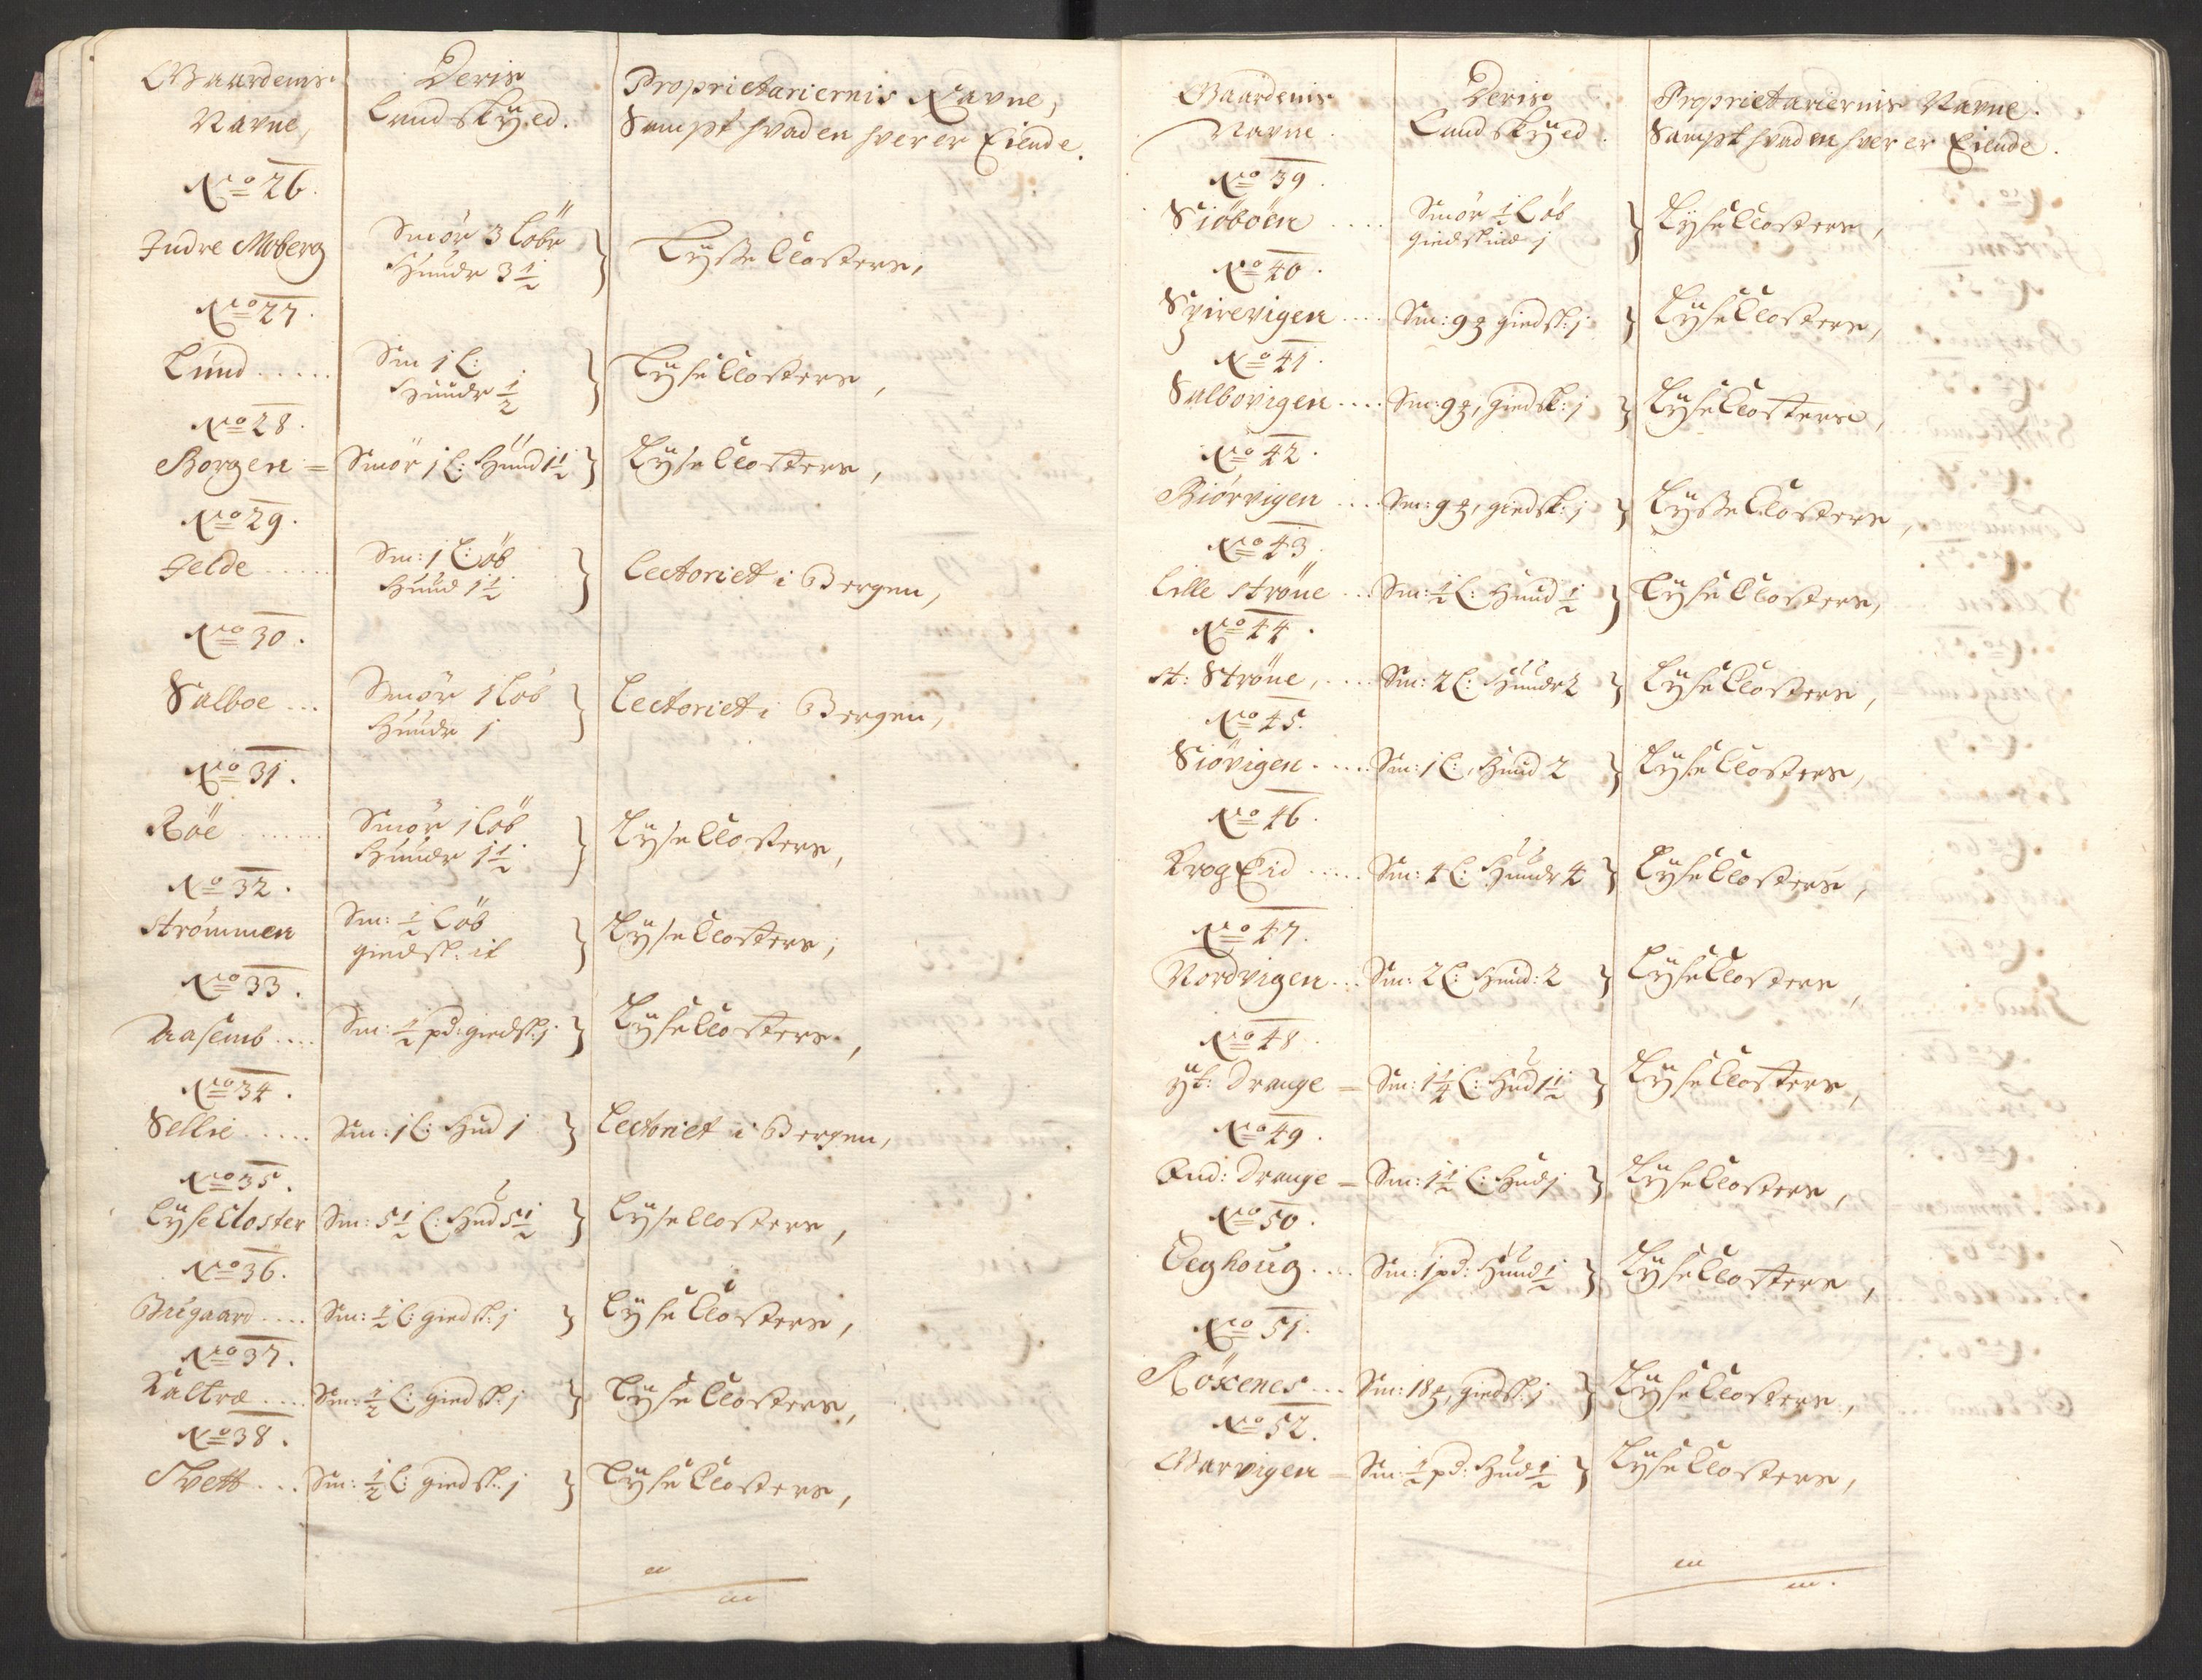 Gaardenis
Navne,
Deris
Landskÿed.
Proprietariernis Navne,
Sampt hvad en hver er Eiende.
No 26.
Indre Moberg
Smör 3 Löbe
Hunde 3 1/2
Lÿsse Closters,
No 27.
Lund .....
Sm 1 L:
Hunde 1/2
Lÿse Closters,
No 28.
Borgen =
Smör 1 L: Hund 1 1/2
Lÿse Closters,
No 29.
Jelde .....
Sm: 1 Löb
Huud 1 1/2
Lectoriet i Bergen,
No 30.
Salboe ...
Smör 1 Löb
Huude 1
Lectoriet i Bergen,
No 31.
Röe .......
Smör 1 Löb
Huude 1 1/2
Lÿse Closters,
No 32.
Strömmen
Sm: 1/2 Löb
giedsk: it
Lÿse Closters,
No 33.
Aasemb ....
Sm: 1/2 pd: giedsk: j
Lÿse Closters,
No 34.
Sellie .....
Sm: 1 L: Hud 1
Lectoriet i Bergen,
No 35.
Lÿse Closter
Sm: 5 1/2 L: Hud 5 1/2
Lÿse Closters,
No 36.
Bugaard ....
Sm: 1/2 L: giedsk: j
Lÿse Closters,
No 37.
Kaltræ ....
Sm: 1/2 L: giedsk: j
Lÿse Closters,
No 38.
Tvett ...
Sm: 1/2 L: giedsk: j
Lÿse Closters,
Gaardenis
Navne.
Deris
Landskÿed.
Proprietariernis Navne.
Sampt hvad en hver er Eiende.
No 39.
Siöböen ....
Smör 1/2 Löb
giedskind j
Lÿse Closters,
No 40.
Spirevigen ....
Sm: 9 ʒ giedsk: j
Lÿse Closters,
No 41.
Salbovigen ....
Sm: 9 ʒ, giedsk: j
Lÿse Closters,
No 42.
Biörvigen ....
Sm: 9 ʒ, giedsk: j
Lÿsse Closters,
No 43.
Lille Ströne ...
Sm: 1/2 L: Huud 1/2
Lÿse Closters,
No 44.
st: Ströne, ....
Sm: 2 L: Huude 2
Lÿse Closters,
No 45.
Siövigen .....
Sm: 1 L:, Huud 2
Lÿse Closters,
No 46.
Krog Eid .....
Sm: 4 L: Huude 4
Lÿse Closters,
No 47.
Nordvigen ...
Sm: 2 L: Huud: 2
Lÿse Closters,
No 48.
ÿt: Drange =
Sm: 1 1/4 L: Hud 1 1/2
Lÿse Closters,
No 49.
Ind: Drange =
Sm: 1 1/2 L: Hud j
Lÿse Closters,
No 50.
Eeghoug ....
Sm: 1 pd: Huud 1/2
Lÿse Closters,
No 51.
Röxenes ...
Sm: 18 ʒ, giedsk: j
Lÿse Closters,
No 52.
Varvigen =
Sm: 1/2 pd: Hud 1/2
Lÿse Closters,